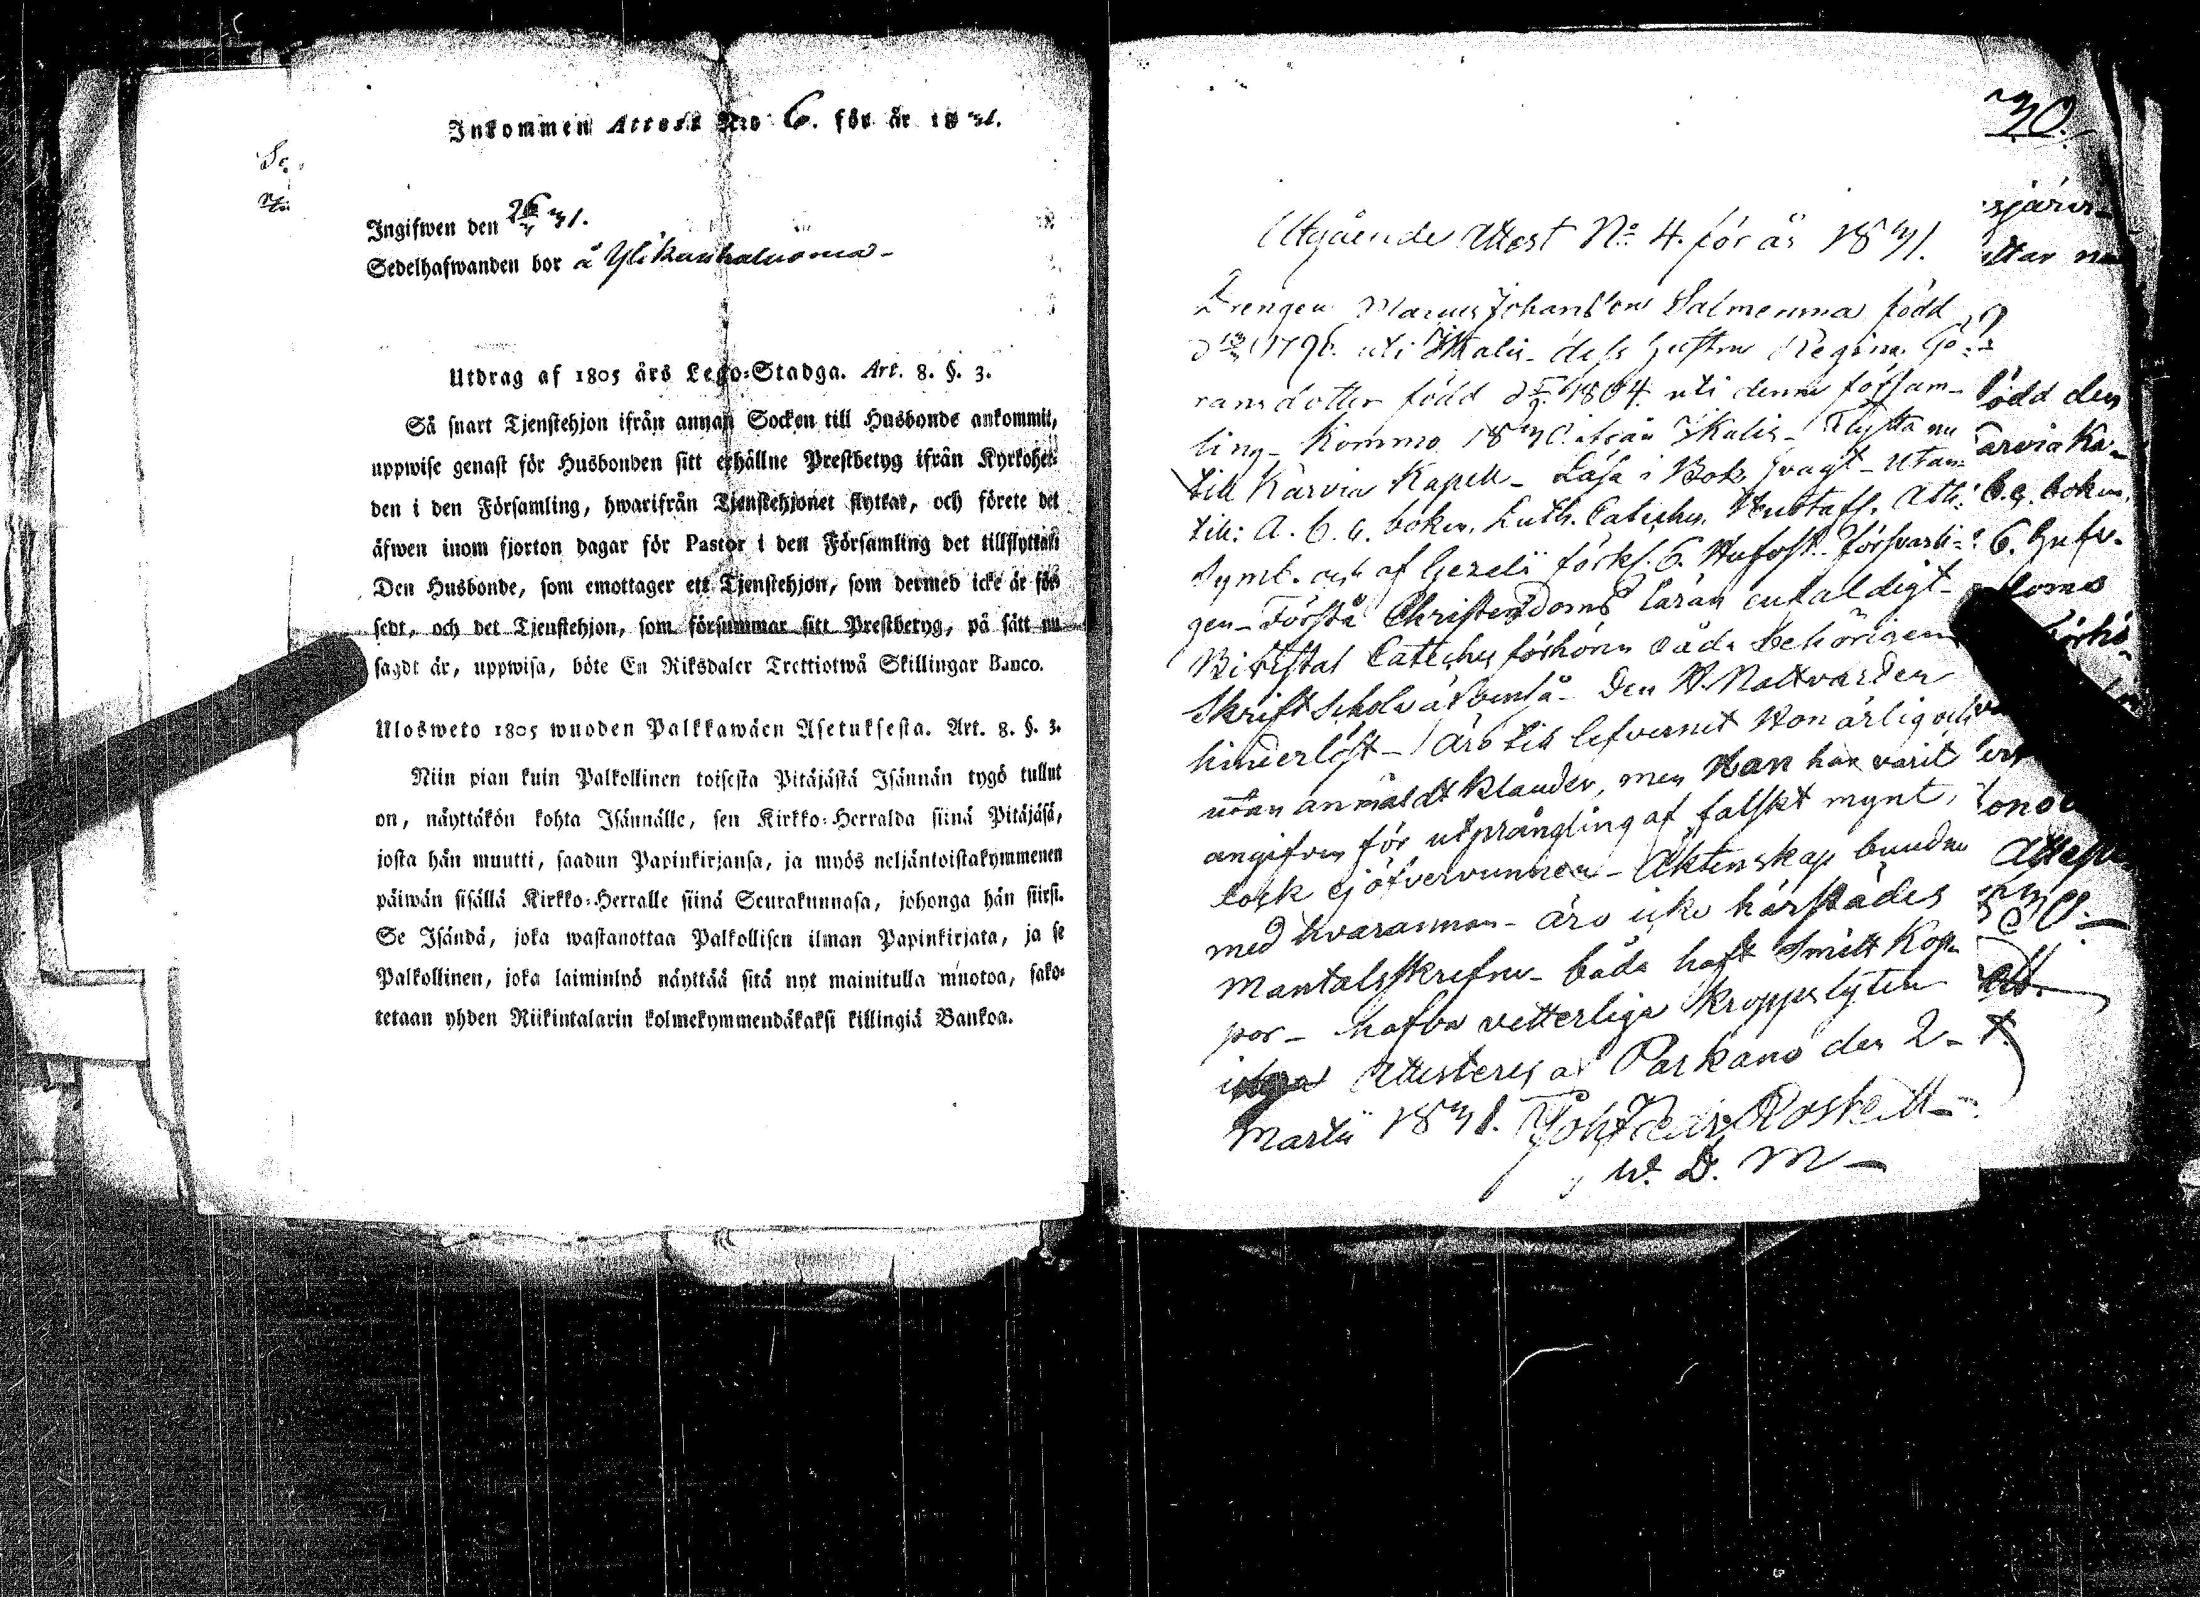 Inkommen Attest N:o 6. för år 1831.
Ingifwen den 26/4 31.
Sedelhafwanden bor å Ylikauhaluoma
Utdrag af 1805 års Lego-Stadga. Art. 8. §. 3.
Så snart Tjenstehjon ifrån annan Socken till Husbonde ankommit,
uppwise genast för Husbonden sitt erhållne Prestbetyg ifrån Kyrkoher-
den i den Församling, hwarifrån Tjenstehjonet flyttat, och förete det
äfwen inom fjorton dagar för Pastor i den Församling det tillflyttat.
Den Husbonde, som emottager ett Tjenstehjon, som dermed icke är för-
sedt, och det Tjenstehjon, som försummar sitt Prestbetyg, på sätt nu
sagdt är, uppwisa, böte En Riksdaler Trettiotwå Skillingar Banco.
Ulosweto 1805 wuoden Palkkawäen Asetuksesta. Art. 8. §. 3.
Niin pian kuin Palkollinen toisesta Pitäjästä Isännän tygö tullut
on, näyttäkön kohta Isännälle, sen Kirkko-Herralda siinä Pitäjäsä,
josta hän muutti, saadun Papinkirjansa, ja myös neljäntoistakymmenen
päiwän sisällä Kirkko-Herralle siinä Seurakunnasa, johonga hän siirsi.
Se Isändä, joka wastanottaa Palkollisen ilman Papinkirjata, ja se
Palkollinen, joka laiminlyö näyttää sitä nyt mainitulla muotoa, sako-
tetaan yhden Riikintalarin kolmekymmendäkaksi killingiä Bankoa.
Utgående Attest No 4. för år 1831.
Drengen Johansson Salmenma född
1796. uti Ikalis dess hustru Regina Gö-
ransdotter född 1804 uti denna försam-
ling - Komma 1830 ifrån Ikalis - Flytta nu
till Karvia Kapell - Läsa i Bok svagt - Utan-
till: A. b. c. boken, Luth. Catiches. Hustafl. Ath:
Symb. och af Gezelii förkl. 6. Hufvst. försvarli-
gen - Förstå Christendoms läran enfaldigt -
Bivistat Catiches förhören båda behörigen
Skriftskola äfvenså - Den H. Nattvarden
hinderlöst - Äro till lefvernet Hon ärlig och
utan anmäldt klander, men Han har varit
angifven för utprångling af falskt mynt,
dock ej öfvervunnen - Äktenskap bundne
med hvarannan - äro icke härstädes
Mantalsskrefne - båda haft Smitt Kop-
por - hafva vetterliga kroppslyten
inga Attesteras af Parkano den 2
Martii 1831. Joh
V. D. M
30.
född den
arvia Ka-
b. c. boken,
6. Hufv-
doms
30.